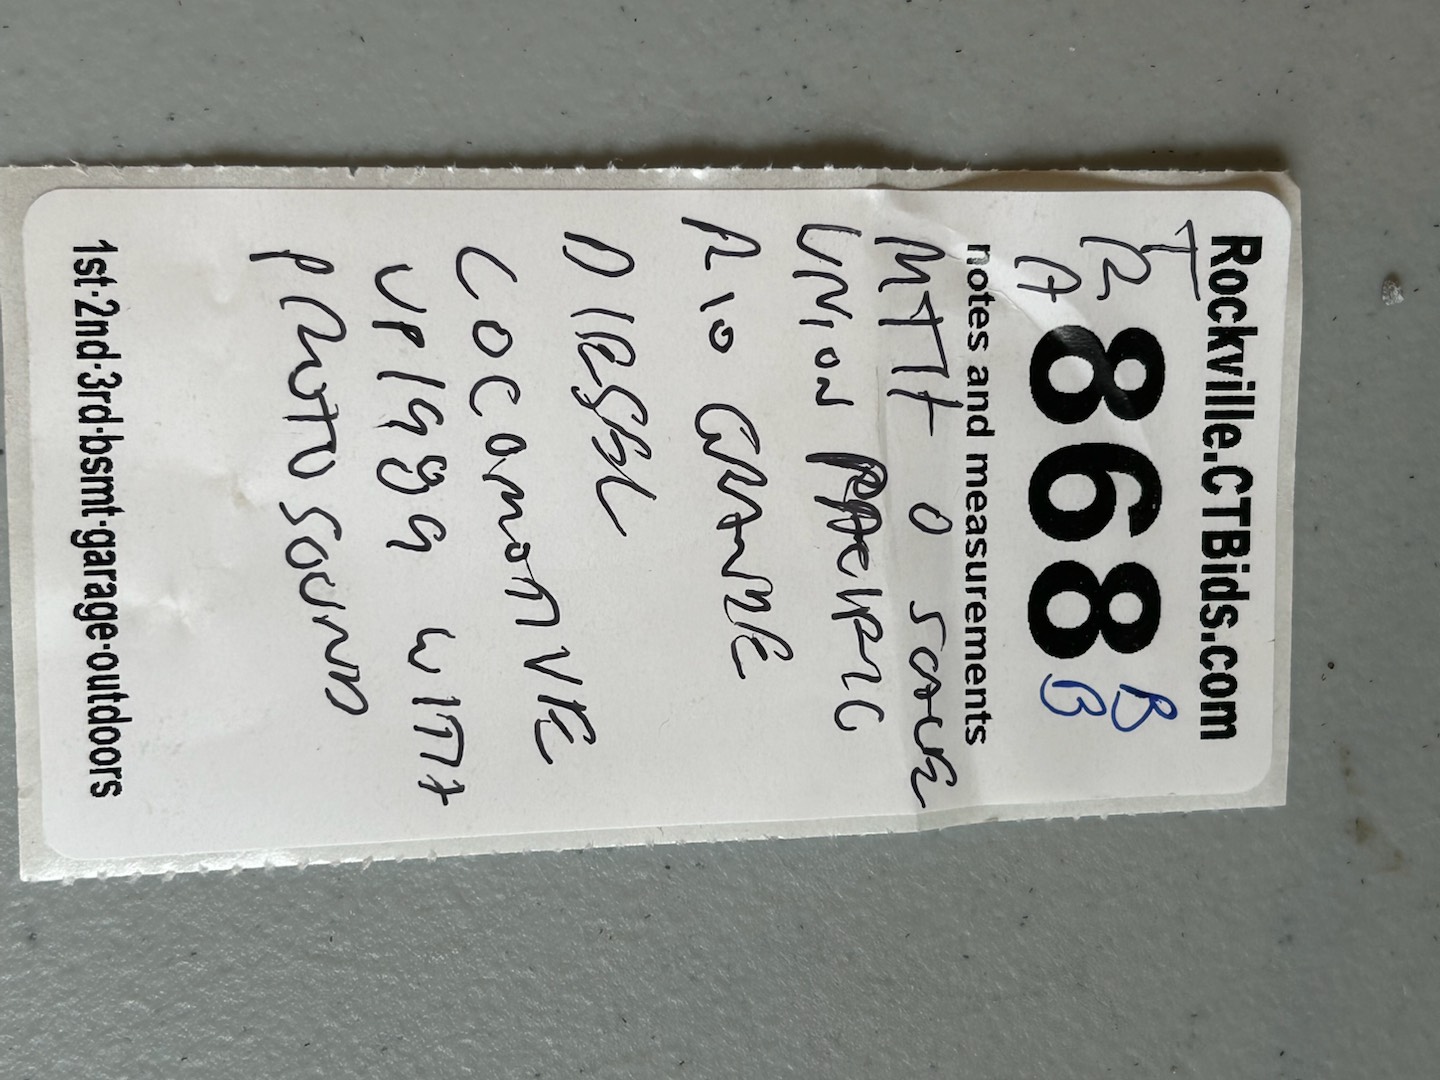 Rockville.CTBids.com
TRA
868
BB
notes and measurements
MTH O SCALE
UNION PACIFIC
RIO GRANDE
DIESEL
LOCOMOTIVE
UP 1989 WITH
PROTO SOUND
1st·2nd·3rd·bsmt·garage·outdoors